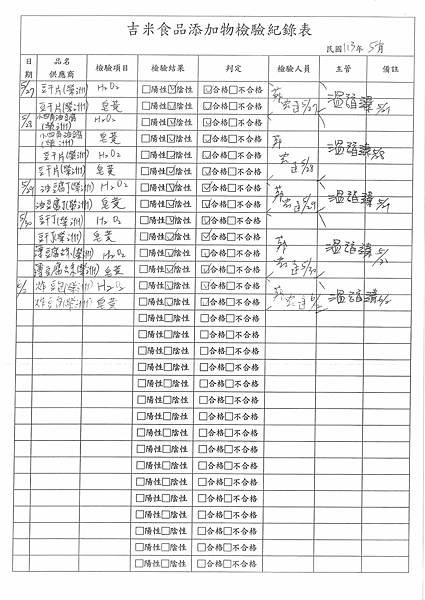 吉米食品添加物檢驗紀錄表
民國 113 年 5月
日期 品名 供應商 檢驗項目 檢驗結果 判定 檢驗人員 主管 備註
5/27 豆干片(榮洲) H2O2 □陽性☑陰性 ☑合格□不合格
豆干片(榮洲) 皂黃 □陽性☑陰性 ☑合格□不合格 5/27 5/27
5/28 小四角油豆腐(榮洲) H2O2 □陽性☑陰性 ☑合格□不合格
小四角油豆腐(榮洲) 皂黃 □陽性☑陰性 ☑合格□不合格
豆干片(榮洲) H2O2 □陽性☑陰性 ☑合格□不合格 5/28
豆干片(榮洲) 皂黃 □陽性☑陰性 ☑合格□不合格 5/28
5/29 油豆腐丁(榮洲) H2O2 □陽性☑陰性 ☑合格□不合格
油豆腐丁(榮洲) 皂黃 □陽性☑陰性 ☑合格□不合格 5/29 5/29
5/30 豆干丁(榮洲) H2O2 □陽性☑陰性 ☑合格□不合格
豆干丁(榮洲) 皂黃 □陽性☑陰性 ☑合格□不合格
薄豆腐絲(榮洲) H2O2 □陽性☑陰性 ☑合格□不合格
薄豆腐絲(榮洲) 皂黃 □陽性☑陰性 ☑合格□不合格 5/30
炸豆包(榮洲) H2O2 □陽性☑陰性 ☑合格□不合格
炸豆包(榮洲) 皂黃 □陽性☑陰性 ☑合格□不合格
□陽性□陰性 □合格□不合格
□陽性□陰性 □合格□不合格
□陽性□陰性 □合格□不合格
□陽性□陰性 □合格□不合格
□陽性□陰性 □合格□不合格
□陽性□陰性 □合格□不合格
□陽性□陰性 □合格□不合格
□陽性□陰性 □合格□不合格
□陽性□陰性 □合格□不合格
□陽性□陰性 □合格□不合格
□陽性□陰性 □合格□不合格
□陽性□陰性 □合格□不合格
□陽性□陰性 □合格□不合格
□陽性□陰性 □合格□不合格
□陽性□陰性 □合格□不合格
□陽性□陰性 □合格□不合格